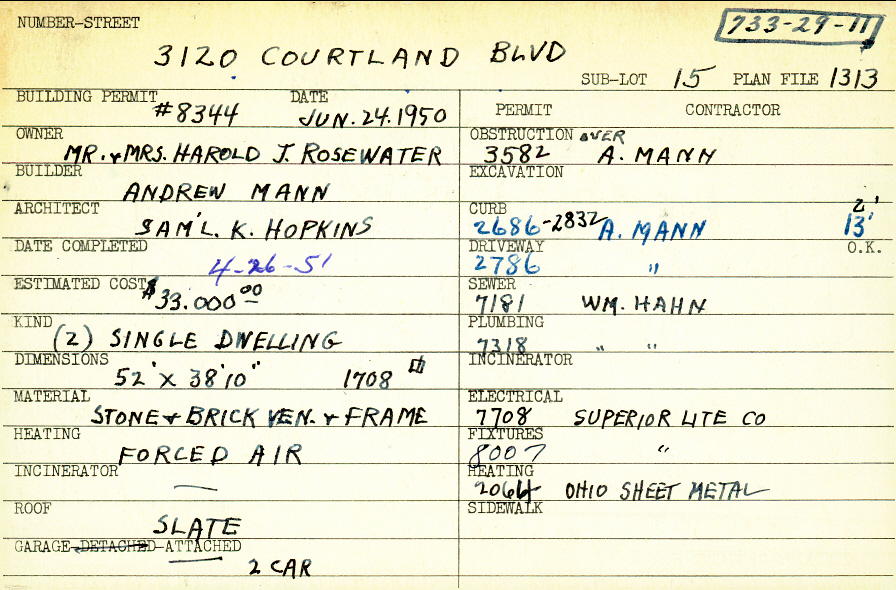 NUMBER-STREET
733-29-11
3120 COURTLAND BLVD
SUB-LOT 15 PLAN FILE 1313
BUILDING PERMIT #8344 DATE JUN. 24. 1950
OWNER
MR. & MRS. HAROLD J. ROSEWATER
BUILDER
ANDREW MANN
ARCHITECT
SAM'L. K. HOPKINS
DATE COMPLETED
4-26-51
ESTIMATED COST $33.000.00
KIND
(2) SINGLE DWELLING
DIMENSIONS
52' X 38'10" 1708
MATERIAL
STONE & BRICK VEN. & FRAME
HEATING
FORCED AIR
INCINERATOR
—
ROOF
SLATE
GARAGE-DETACHED-ATTACHED
2 CAR
PERMIT CONTRACTOR
OBSTRUCTION OVER
3582 A. MANN
EXCAVATION
CURB 2'
2686-2832 A. MANN 13'
DRIVEWAY O.K.
2786 "
SEWER
7181 WM. HAHN
PLUMBING
7318 " "
INCINERATOR
ELECTRICAL
7708 SUPERIOR LITE CO
FIXTURES
8007 "
HEATING
2064 OHIO SHEET METAL
SIDEWALK